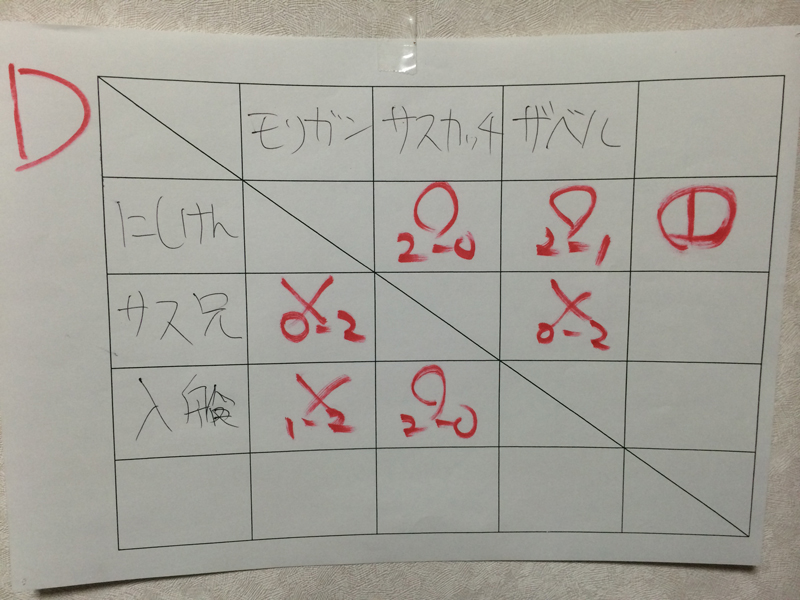 D
モリガン サスカッチ ザベル
にしけん ○ 2-0 ○ 2-1 ①
サス兄 × 0-2 × 0-2
× 1-2 ○ 2-0